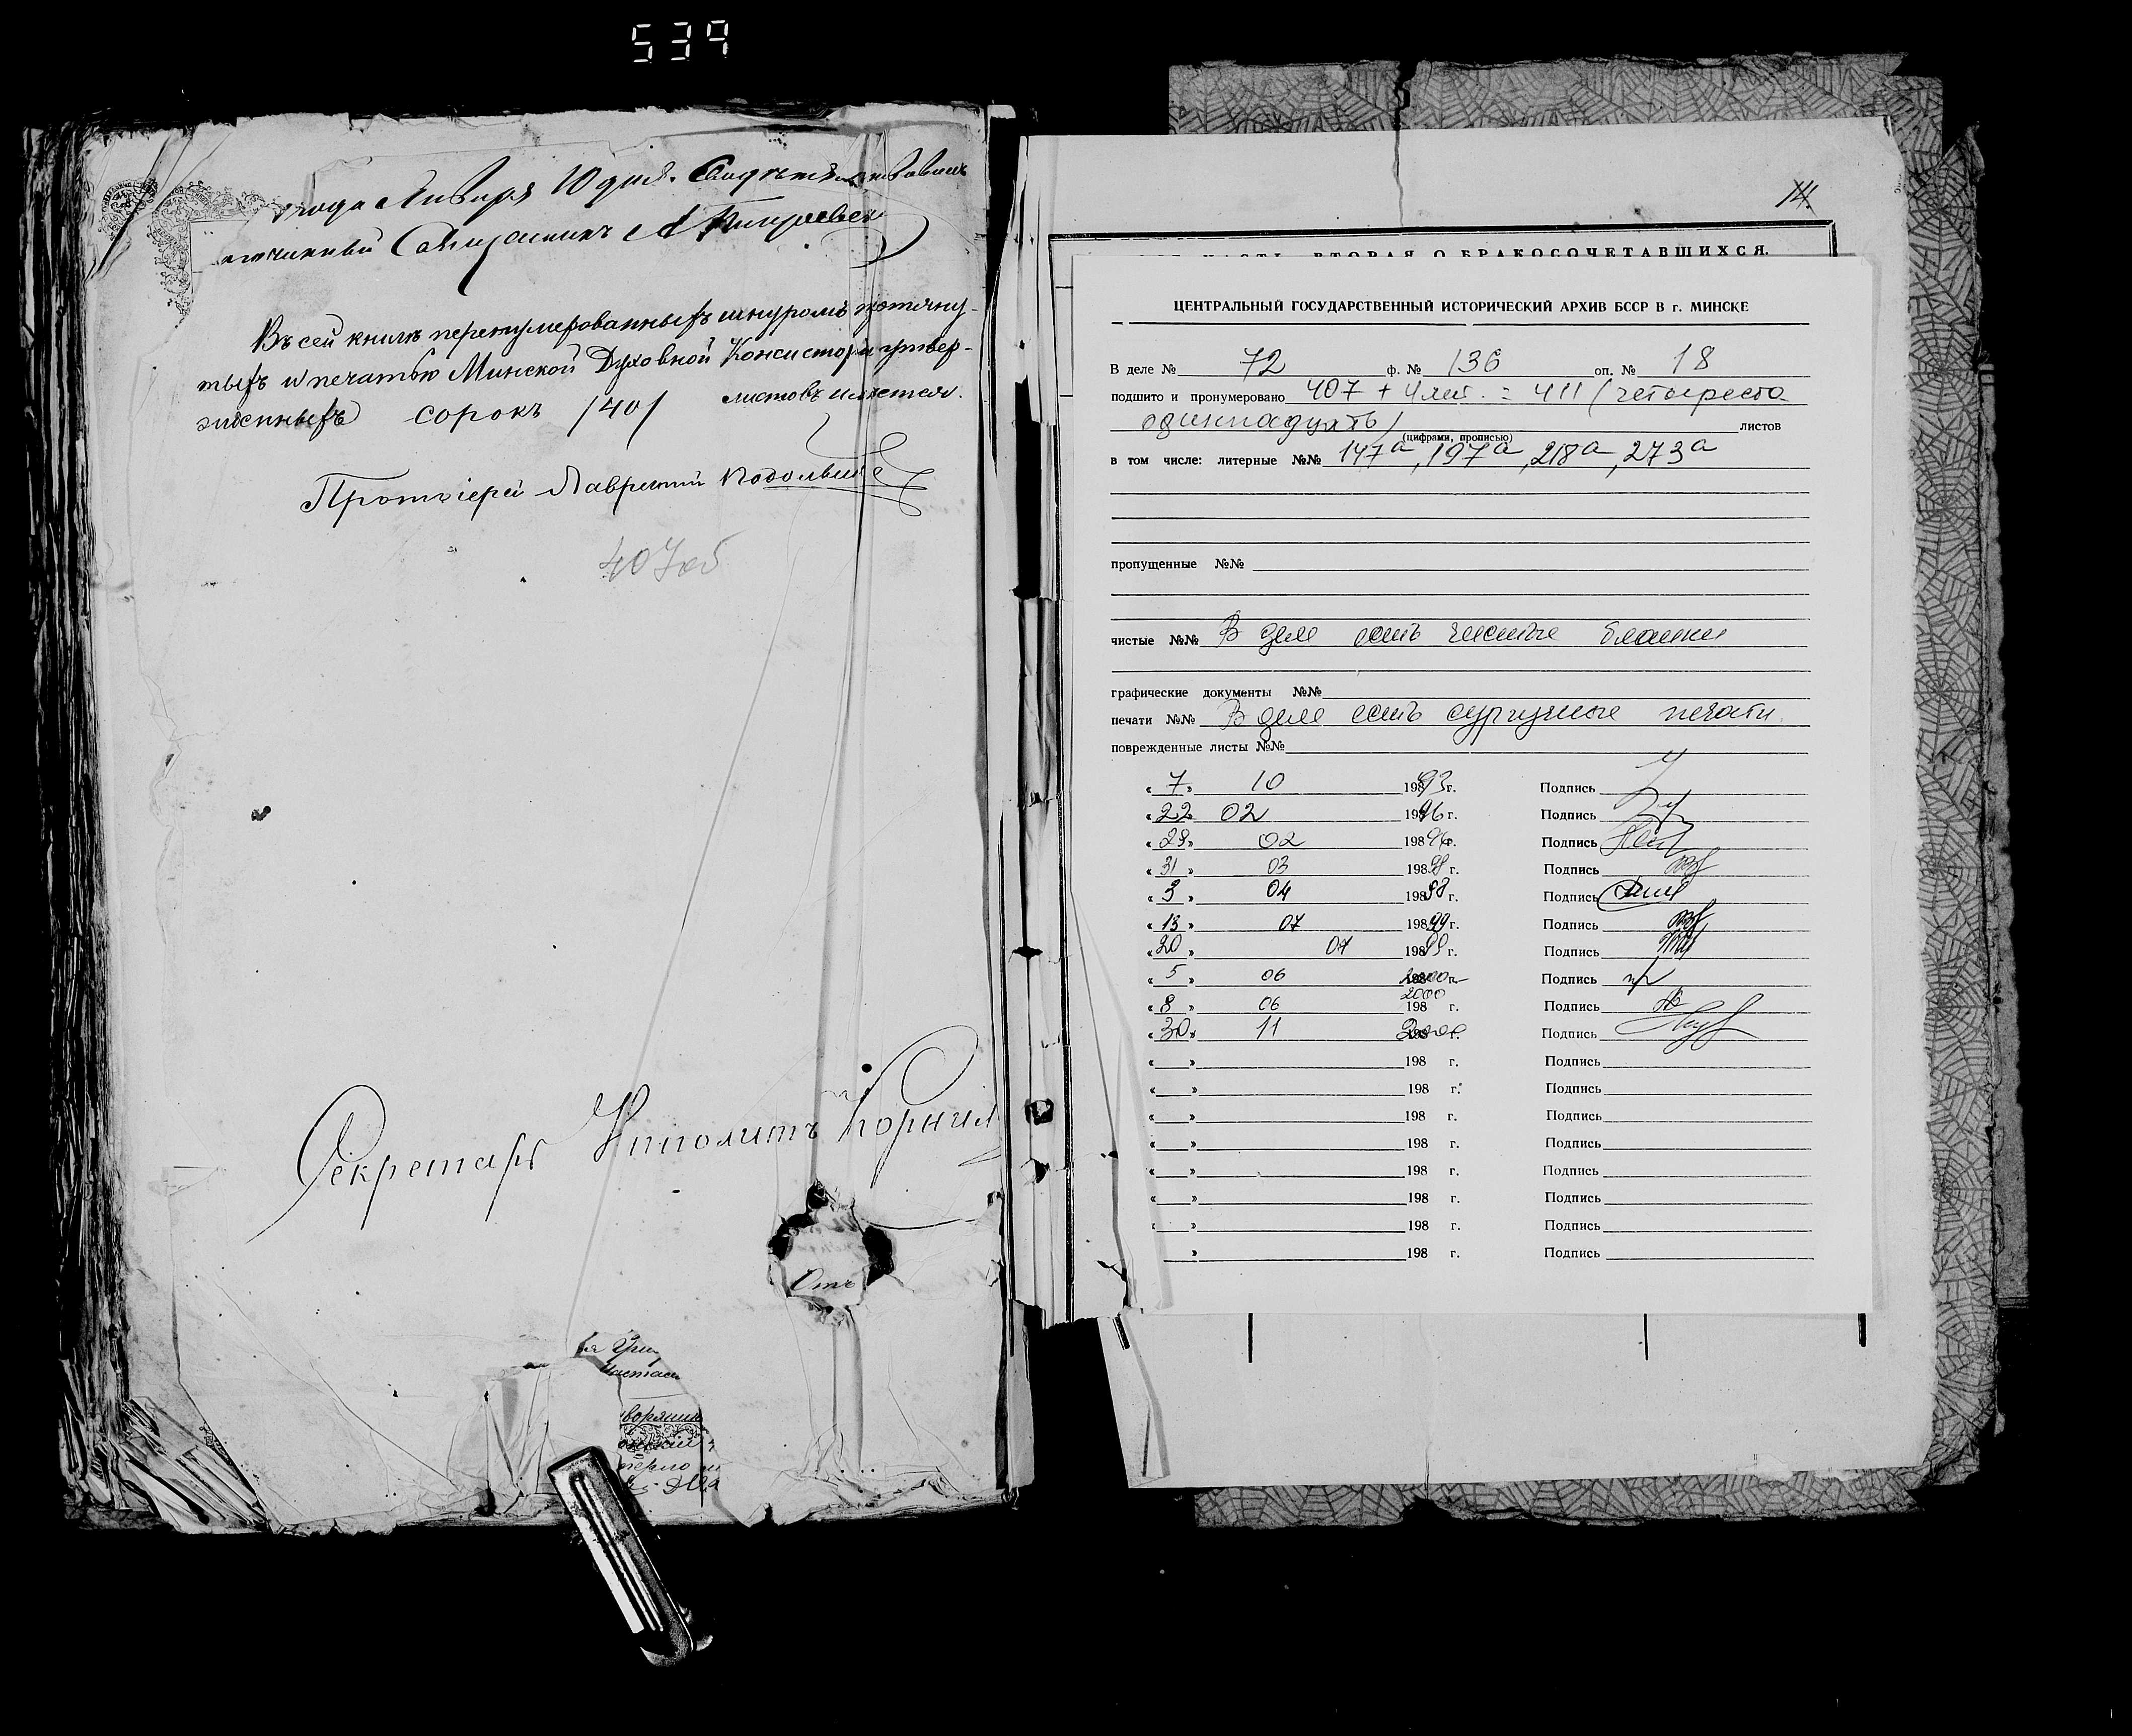 539
года Января 10 дня.
Въ сей книгѣ перенумерованныхъ шнуромъ протяну-
тыхъ и печатью Минской Духовной Консисторіи утвер-
жденныхъ сорокъ /40/ листовъ имѣется.
Протоіерей Лаврентій
407об
Секретарь Ипполитъ
Отъ
14.
ЧАСТЬ ВТОРАЯ О БРАКОСОЧЕТАВШИХСЯ.
ЦЕНТРАЛЬНЫЙ ГОСУДАРСТВЕННЫЙ ИСТОРИЧЕСКИЙ АРХИВ БССР В г. МИНСКЕ
В деле № 72 ф. № 136 оп. № 18
подшито и пронумеровано 407 + 4 лит. = 411 (четыреста
одиннадцать) листов
(цифрами, прописью)
в том числе: литерные №№ 147а, 197а, 218а, 273а
пропущенные №№
чистые №№ В деле есть чистые бланки
графические документы №№
печати №№ В деле есть сургучные печати.
поврежденные листы №№
« 7 » 10 19893 г. Подпись
« 22 » 02 19896 г. Подпись
« 28 » 02 198 г. Подпись
« 31 » 03 19898 г. Подпись
« 3 » 04 19898 г. Подпись
« 13 » 07 19899 г. Подпись
« 20 » 07 19899 г. Подпись
« 5 » 06 2000 г. Подпись
« 8 » 06 2000 198 г. Подпись
« 30 » 11 г. Подпись
« » 198 г. Подпись
« » 198 г. Подпись
« » 198 г. Подпись
« » 198 г. Подпись
« » 198 г. Подпись
« » 198 г. Подпись
» 198 г. Подпись
» 198 г. Подпись